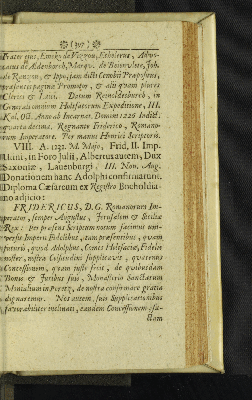 Frater ejus, Emeko de Vizzou, Echelerus, Advo-
catus de Aldenborch, Marqu. de Boienvlate, Joh.
de Ranzou, & Ipso, jam dicti Cenobii Prapositus,
presentis pagina Promotor, & alii quam plures
Clerici & Laici. Datum Reineldesburch, in
Generali omnium Holtsatorum Expeditione, III.
Kal. Oct. Anno ab Incarnat. Domini 1226 Indict.
quarta decima. Regnante Friderico, Romano-
rum Imperatore. Per manus Hinrici Scriptoris.
VIII. A. 1232. M. Majo, Frid. II. Imp.
Hanc, in Foro Julii, Albertus autem, Dux
Saxoniæ, Lauenburgi, III. Non. Aug.
Donationem hanc Adolphi confirmarunt.
Diploma Cæsareum ex Registro Bocholdia-
no adjicio:
FRIDERICUS, D. G. Romanorum Im-
perator, semper Augustus, Jerusalem & Siciliæ
Rex: Per presens Scriptum notum facimus uni-
versis Imperii Fidelibus, tam presentibus, quam
futuris, quod Adolphus, Comes Holsatiæ, Fidelis
noster, nostra Celsitudini supplicavit, quatenus
Concessionem, quam juste fecit, de quibusdam
Bonis & Juribus suis, Monasterio Sanctarum
Monialium in Poretz, de nostra confirmare gratia
dignaremur. Nos autem, suis Supplicationibus
favorabiliter inclinati, eandem Concessionem
ctam